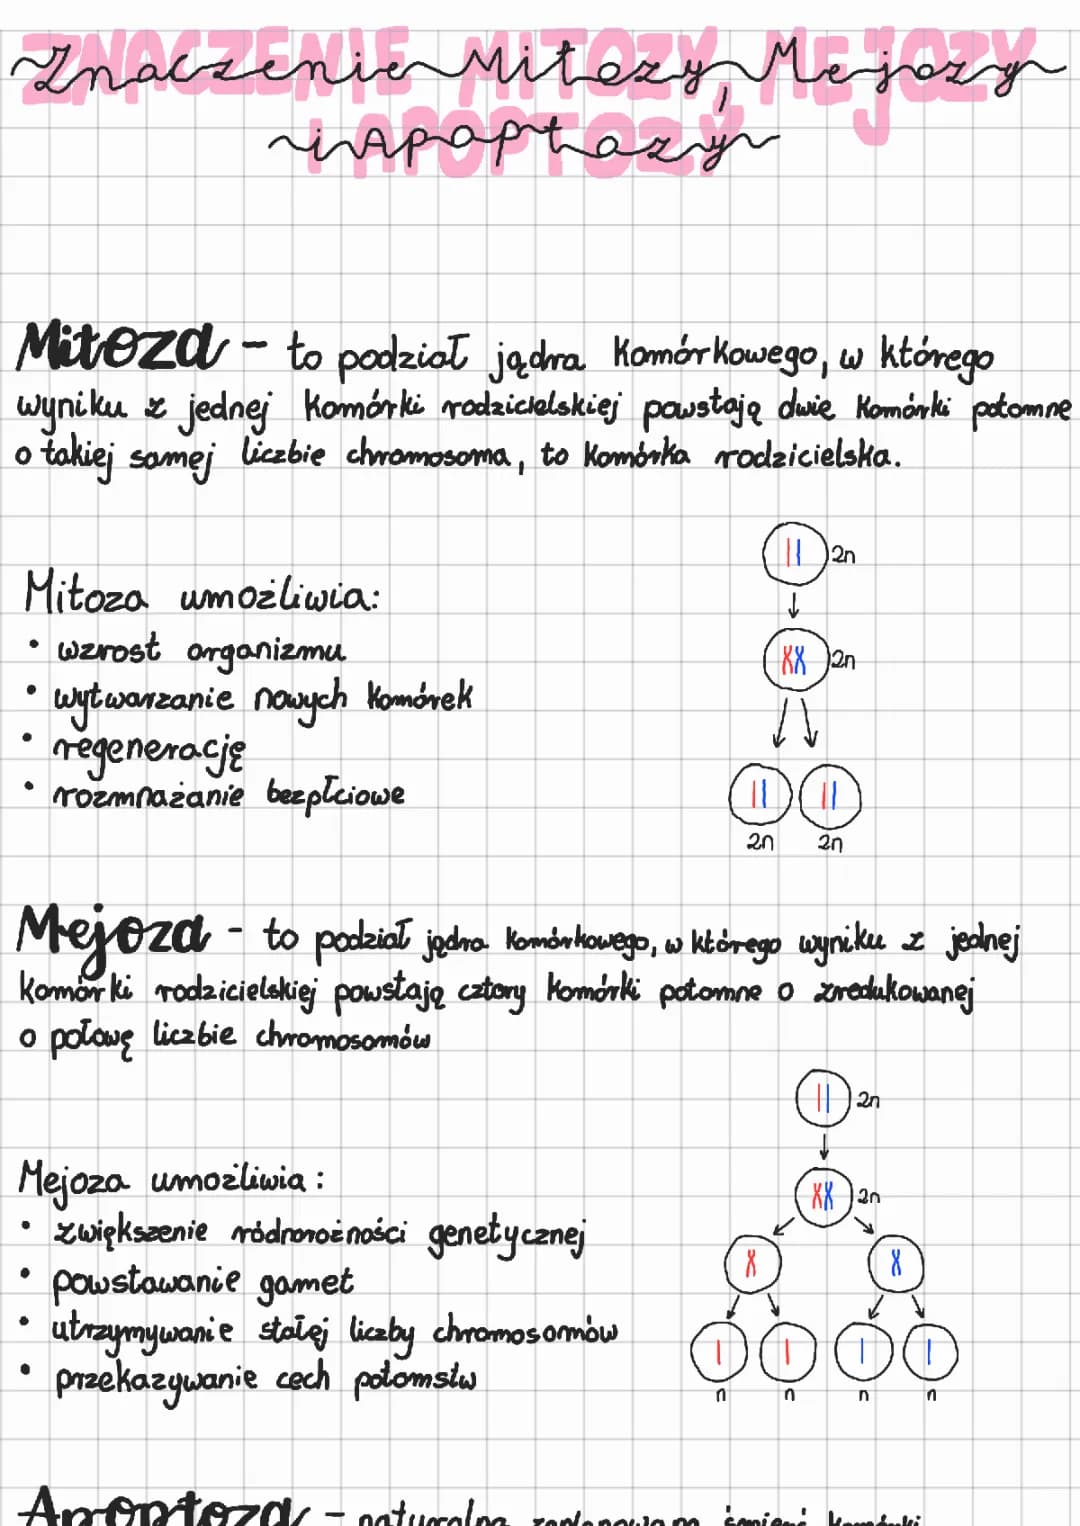 Znaczenie Mitozy, Mejozy
i Apoptozy
Mitoza - to podział jądra komórkowego, w którego
wyniku z jednej komórki rodzicielskiej powstają dwie komórki potomne
o takiej samej liczbie chromosoma, to komórka rodzicielska.
2n
Mitoza umożliwia:
• wzrost organizmu
2n
• wytwarzanie nowych komórek
• regenerację
• rozmnażanie bezpłciowe
2n 2n
Mejoza - to podział jądra komórkowego, w którego wyniku z jednej
komórki rodzicielskiej powstają cztery komórki potomne o zredukowanej
o połowę liczbie chromosomów
2n
Mejoza umożliwia:
2n
• zwiększenie różnorożności genetycznej
• powstawanie gamet
• utrzymywanie stałej liczby chromosomów
• przekazywanie cech potomstw
n n n n
Apoptoza - naturalna zaplanowana śmierć komórki